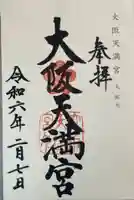 大阪天満宮
奉拝
大阪天満宮
令和六年二月七日